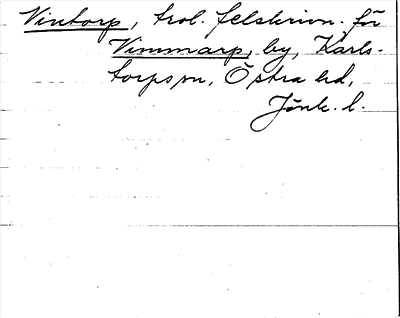 Vintorp, trol. felskrivn. för
Vimmarp, by, Karls-
torps sn, Östra hd,
Jönk. l.